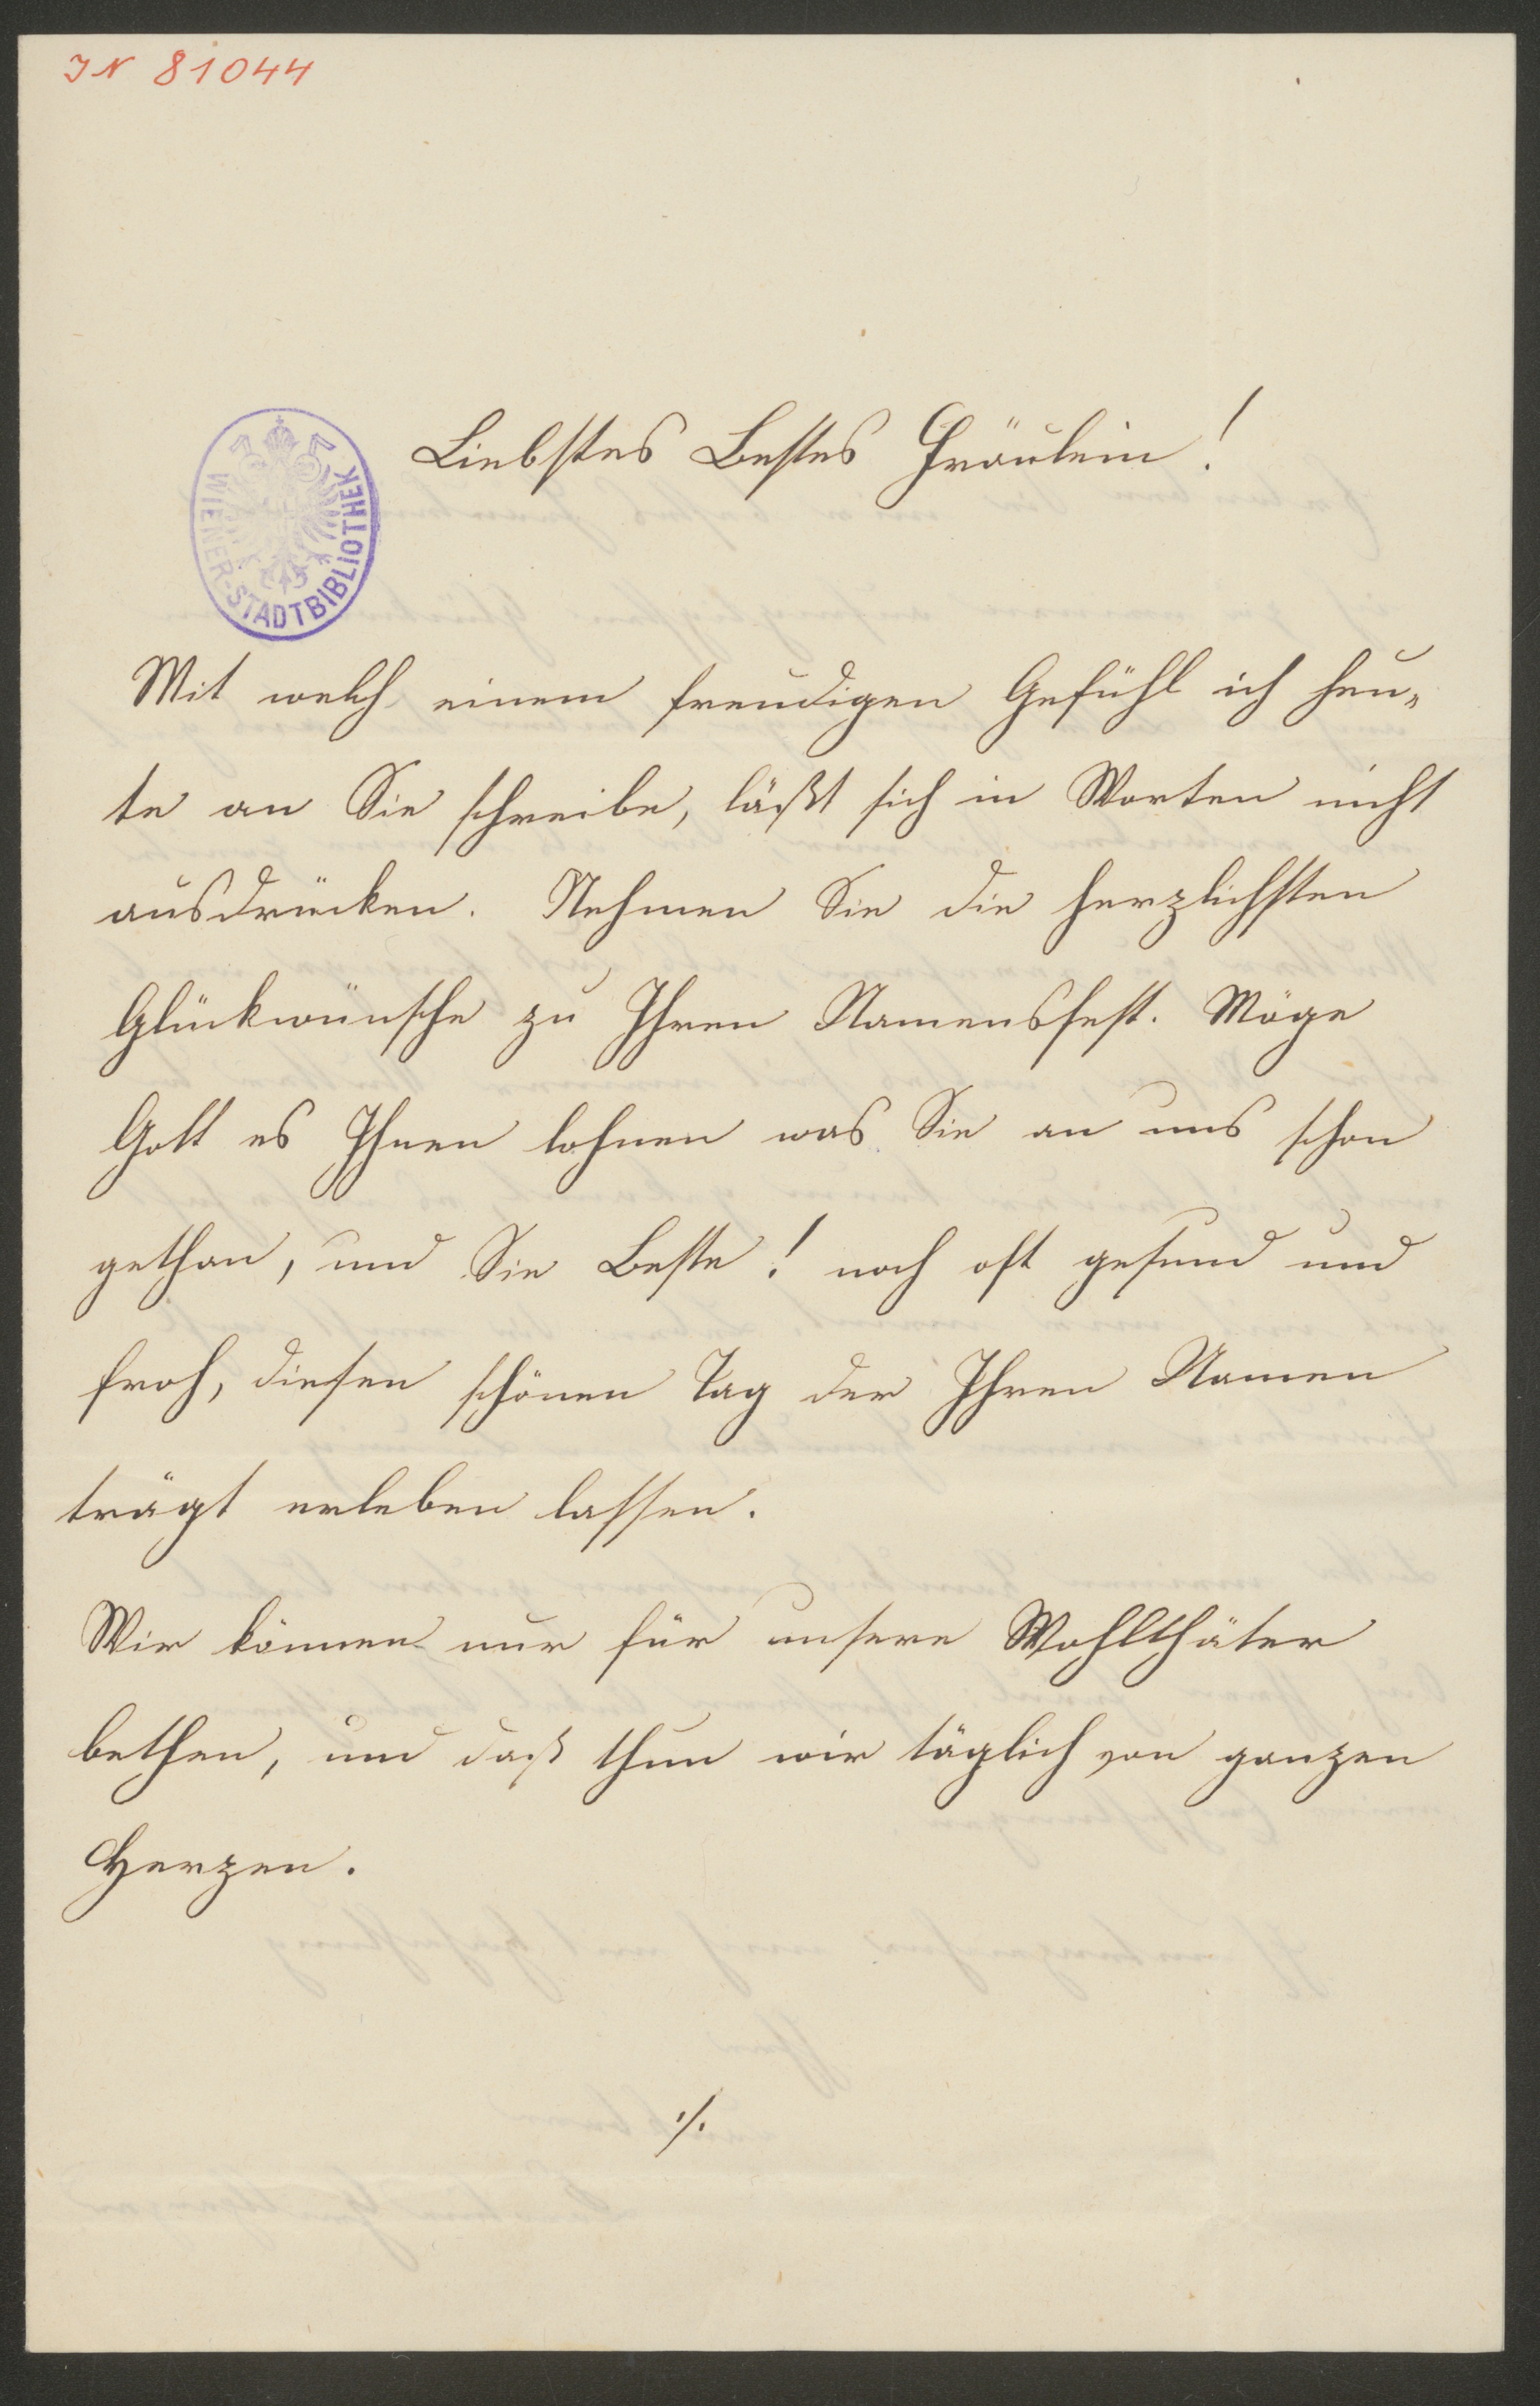 IN 81044
WIENER-STADTBIBLIOTHEK
Liebstes Bestes Fräulein!
Mit welch einem freudigen Gefühl ich heu„
te an Sie schreibe, läßt sich in Worten nicht
ausdrücken. Nehmen Sie die herzlichsten
Glückwünsche zu Ihren Namensfest. Möge
Gott es Ihnen lohnen was Sie an uns schon
gethan, und Sie Beste! noch oft gesund und
froh, diesen schönen Tag der Ihren Namen
trägt erleben lassen.
Wir können nur für unsere Wohlthäter
bethen, und daß thun wir täglich von ganzen
Herzen.
./.